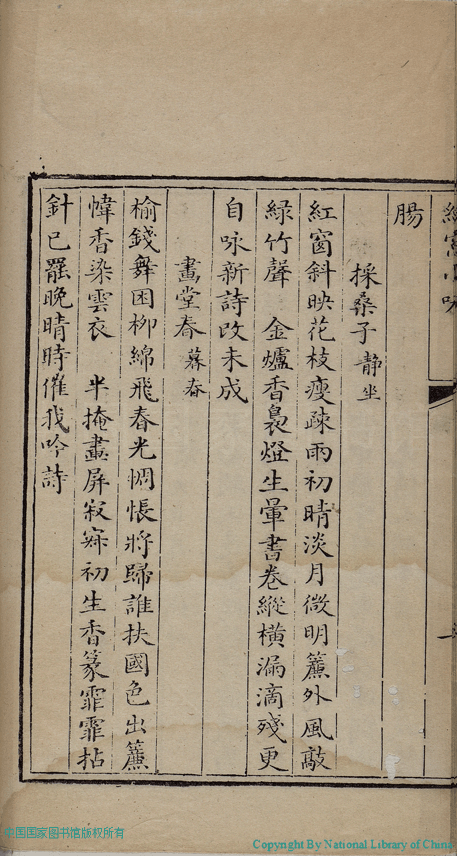 腸
採桑子 靜坐
紅窗斜映花枝瘦疎雨初晴淡月微明簾外風敲
綠竹聲 金爐香裊燈生暈書卷縱橫漏滴殘更
自咏新詩改未成
畫堂春 暮春
榆錢舞困柳綿飛春光惆悵將歸誰扶國色出簾
幃香染雲衣 半掩畫屏寂寞初生香篆霏霏拈
針已罷晚晴時催我吟詩
中国国家图书馆版权所有
Copyright By National Library of China